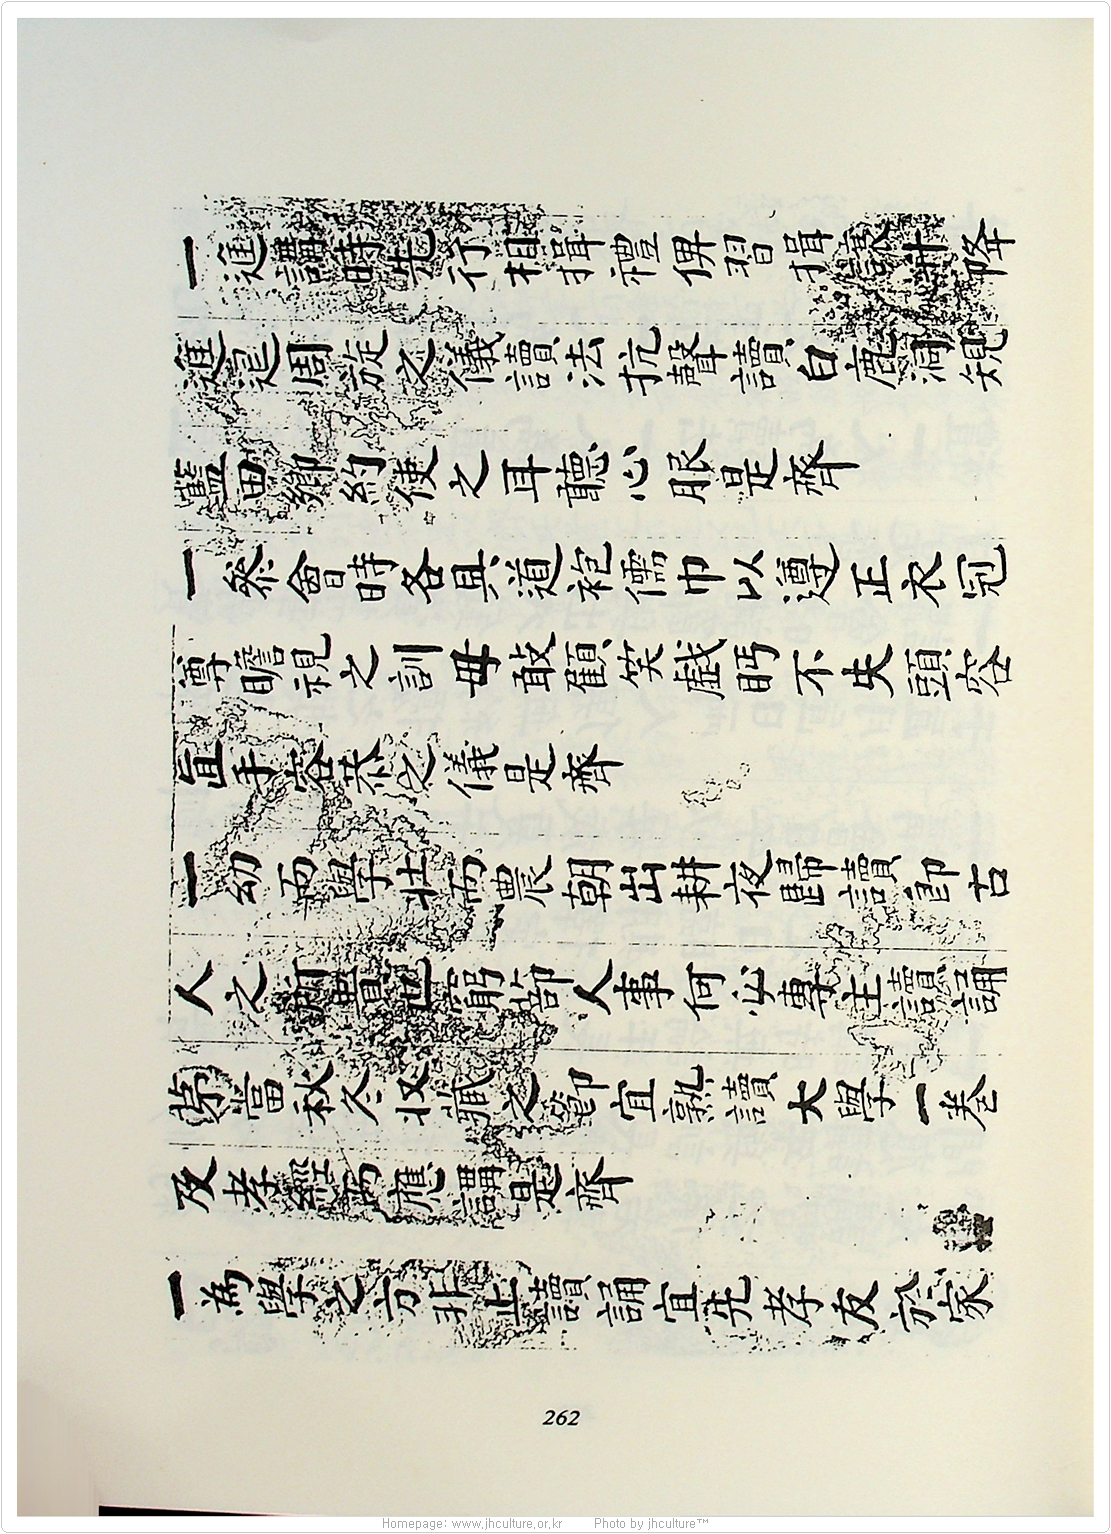 一進講時先行相揖禮俾習揖讓升降
進退周旋之儀讀法抗聲讀白鹿洞規
藍田鄉約使之耳聽心服是齊
一叅會時各具道袍儒巾以遵正衣冠
尊瞻視之訓毋敢顧笑戱眄不失頭容
直手容恭之儀是齊
一幼而學壯而農朝出耕夜歸讀卽古
人之所貴也窮節人事何必專主讀誦
第當秋冬收藏之節宜熟讀大學一卷
及孝經而應講是齊
一為學之方非止讀誦宜先孝友於家
262
Homepage: www.jhculture.or.kr Photo by jhculture™